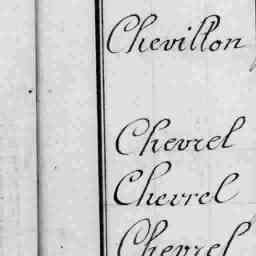 Chevillon
Chevrel
Chevrel
Chevrel